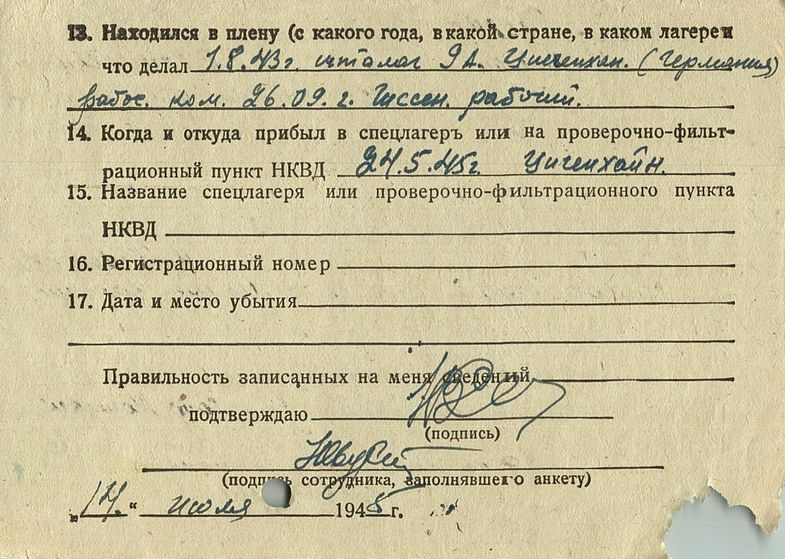 13. Находился в плену (с какого года, в какой стране, в каком лагере и
что делал 1.8.43г. шталаг 9А. Цигенхан. (Германия)
рабоч. ком. 26.09.г. Гиссен. рабочий.
14. Когда и откуда прибыл в спецлагеръ или на проверочно-фильт-
рационный пункт НКВД 24.5.45г. Цигенхайн.
15. Название спецлагеря или проверочно-фильтрационного пункта
НКВД
16. Регистрационный номер
17. Дата и место убытия
Правильность записанных на меня сведений
подтверждаю
(подпись)
(подпись сотрудника, заполнявшего анкету)
„14" июля 1945 г.